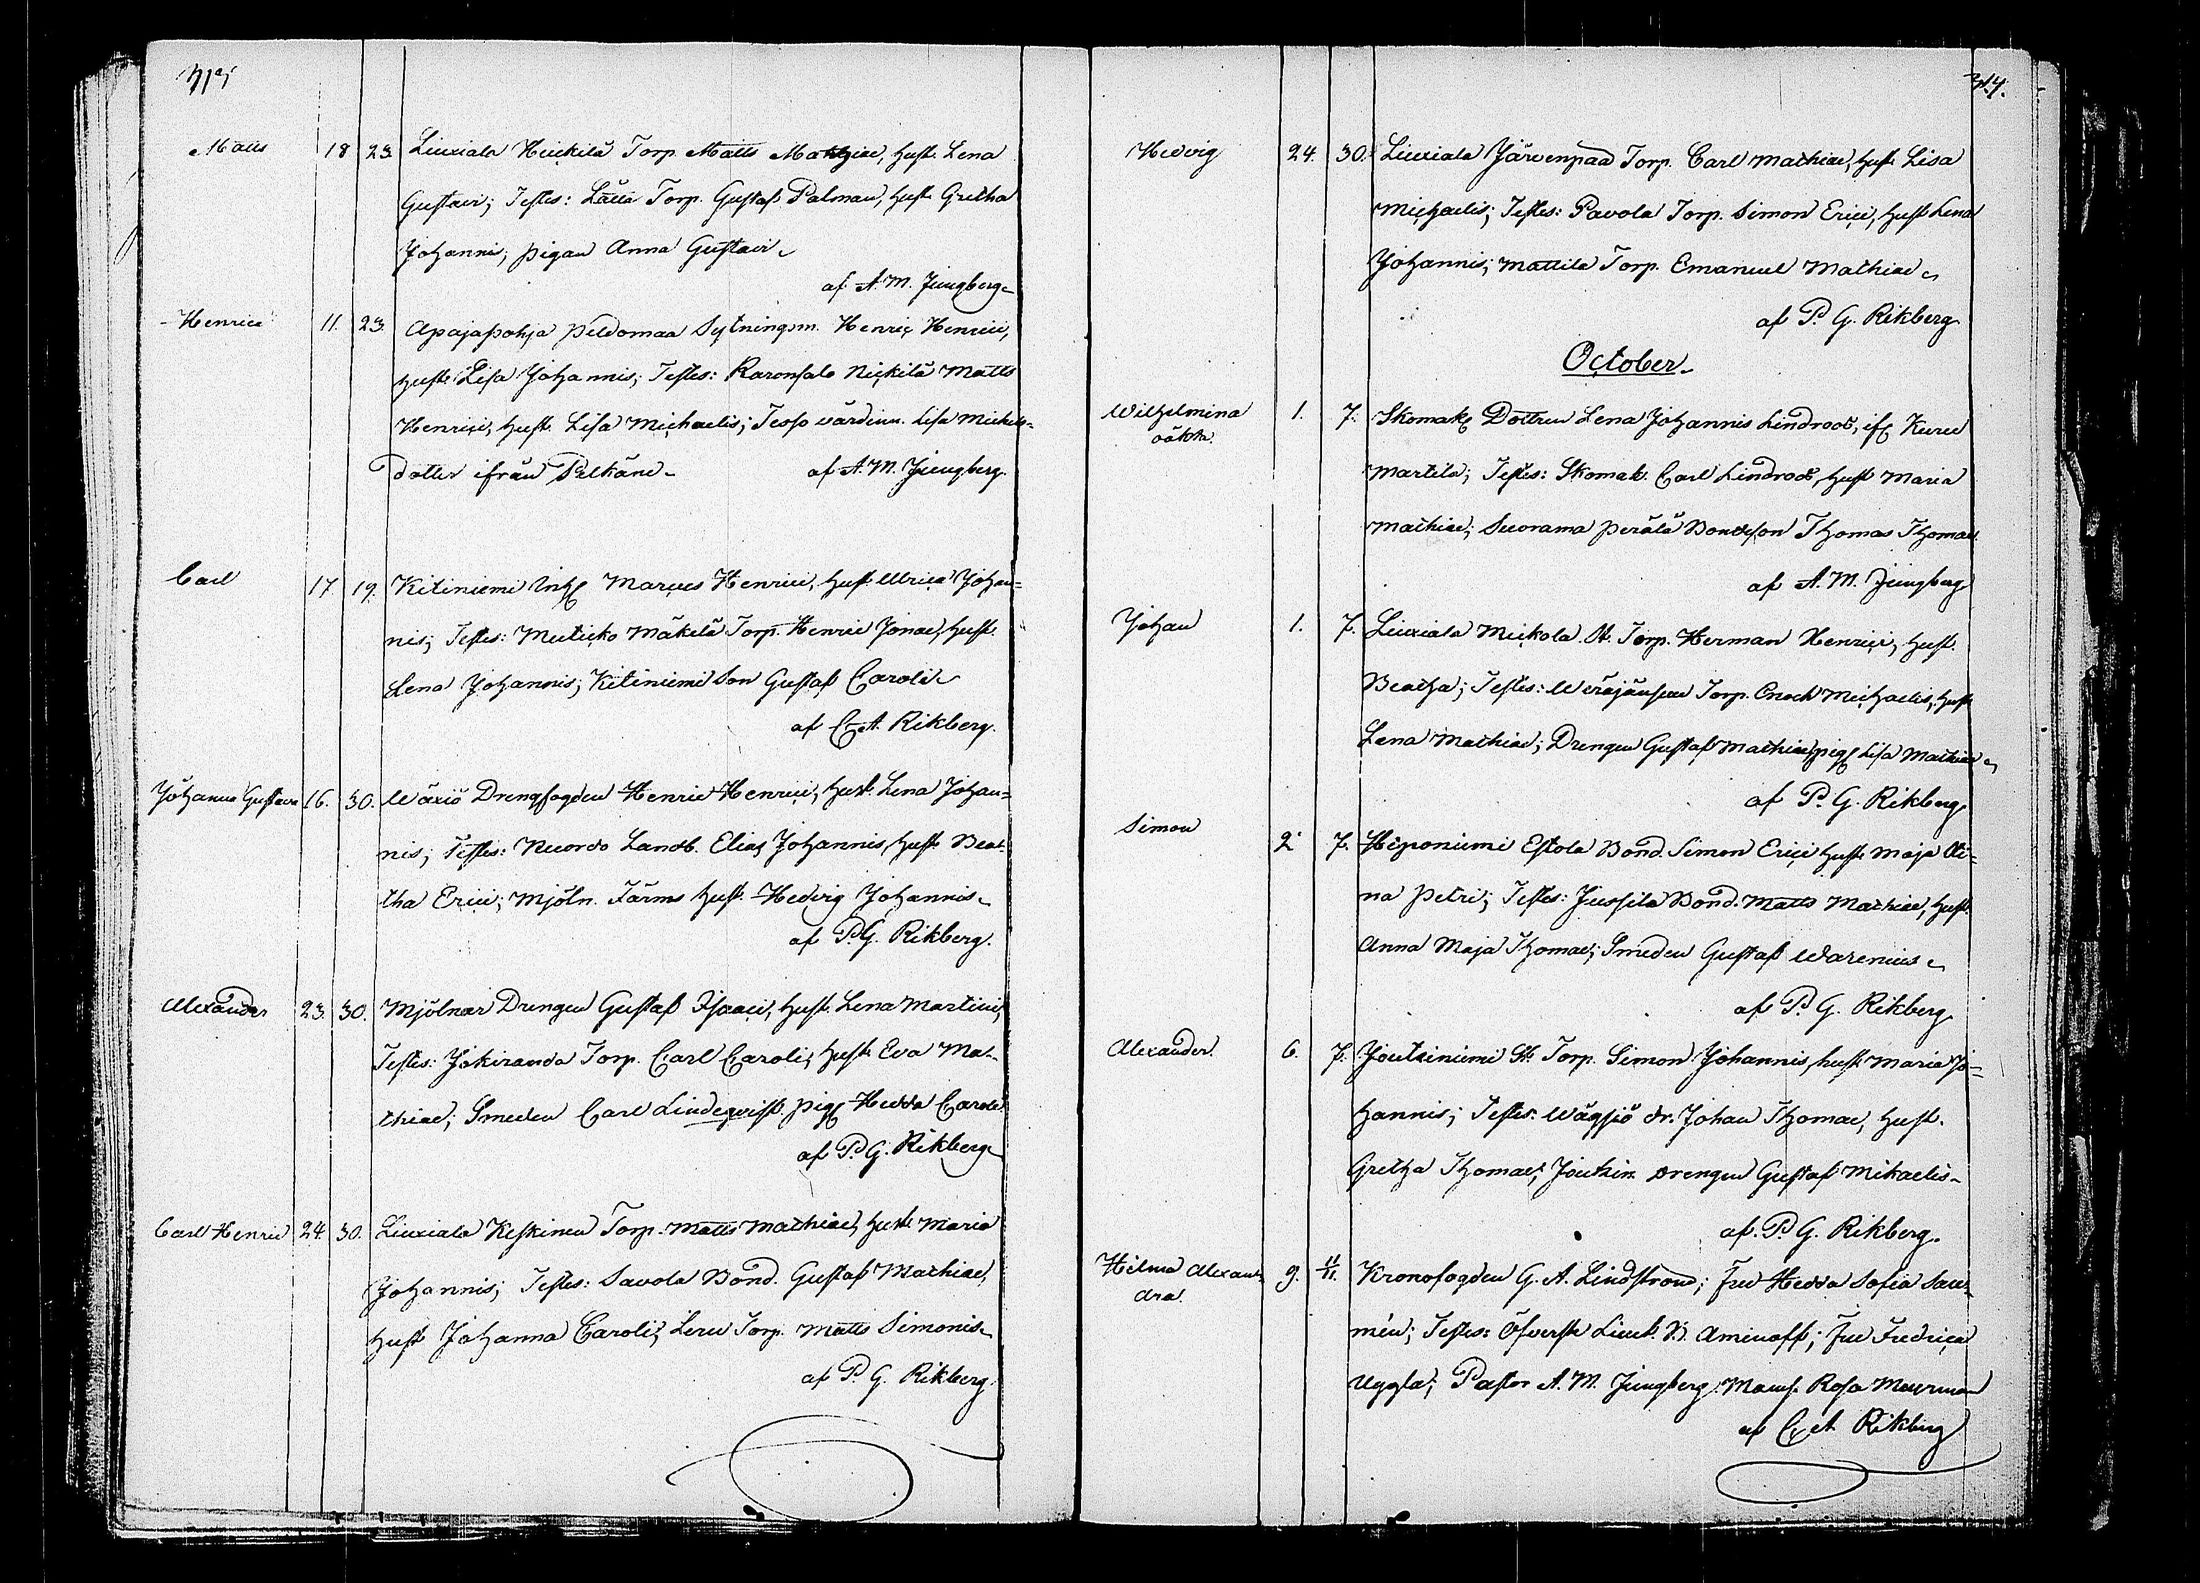 Matts 18 23. Liuxiala Huikila Torp. Matts Mathiae, hust. Lena
Gustavi; Testes: Torp. Gustaf Palman, hust. Gretha
Johannis; pigan Anna Gustavi
af A. M. Jungberg
Henric 11. 23. Apajapohja Peldomaa Sytningsm. Henric Henrici,
hust. Lisa Johannis; Testes: Nickilä Matts
Henrici, hust. Lisa Michaelis; värdinn. Lisa Mickels=
dotter ifrån Pelkäne. af A. M. Jungberg.
Carl 17. 19. Kitiniemi Inh. Marcus Henrici, hust. Ulrica Johan=
nis; Testes: Muticko Mäkelä Torp. Henric Jonae, hust.
Lena Johannis; Kitiniemi Son Gustaf Caroli
af C. A. Rikberg.
Johanna Gustava 16. 30. Wäxiö Drengfogden Henric Henrici, hust. Lena Johan=
nis; Testes: Landb. Elias Johannis, hust. Bea=
tha Erici; Mjöln. Färms hust. Hedvig Johannis.
af P. G. Rikberg.
Alexander 23. 30. Mjölnar Drengen Gustaf Isaaci, hust. Lena Martini;
Testes: Jokiranda Torp. Carl Caroli, hust. Eva Ma=
thiae; Smeden Carl Lindeqvist, pig. Hedda Caroli
af P. G. Rikberg
Carl Henric 24. 30. Liuxiala Keskinen Torp. Matts Mathiae, hust. Maria
Johannis; Testes: Savola Bond. Gustaf Mathiae,
hust. Johanna Caroli; Torp. Matts Simonis.
af P. G. Rikberg.
Hedvig 24. 30. Liuxiala Järvenpää Torp. Carl Mathiae, hust. Lisa
Michaelis; Testes: Pavola Torp. Simon Erici, hust. Lena
Johannis; Mattila Torp. Emanuel Mathiae
af P. G. Rikberg.
October.
Wilhelmina 1. 7. Skomak. Dottren Lena Johannis Lindroos, if.
oäkta. Martila; Testes: Skomak. Carl Lindroos, hust. Maria
Mathiae; Suorama Perälä Bondeson Thomas Thomae
af A. M. Jungberg
Johan 1. 7. Liuxiala Muckola St. Torp. Herman Henrici, hust.
Beatha; Testes: Torp. Enoch Michaelis, hust.
Lena Mathiae; Drengen Gustaf Mathiae, pig. Lisa Mathiae
af P. G. Rikberg
Simon 2 7. Heponiemi Estola Bond. Simon Erici, hust. Maja Sti=
na Petri; Testes: Jussila Bond. Matts Mathiae, hust.
Anna Maja Thomae; Smeden Gustaf Warenius
af P. G. Rikberg
Alexander. 6. 7. Joutsiniemi St. Torp. Simon Johannis, hust. Maria Jo=
hannis; Testes: Wägsjö dr. Johan Thomae, hust.
Gretha Thomae; Joutsin. Drengen Gustaf Mikaelis
af. P. G. Rikberg.
Hilma Alexan= 9. Kronofogden G. A. Lindström; Fru Hedda Sofia
dra. Testes: Öfverste Lieut. B. Aminoff; Fru Fredrica
Uggla; Pastor A. M. Jungberg; Mams. Rosa Meurman
af C. A. Rikberg